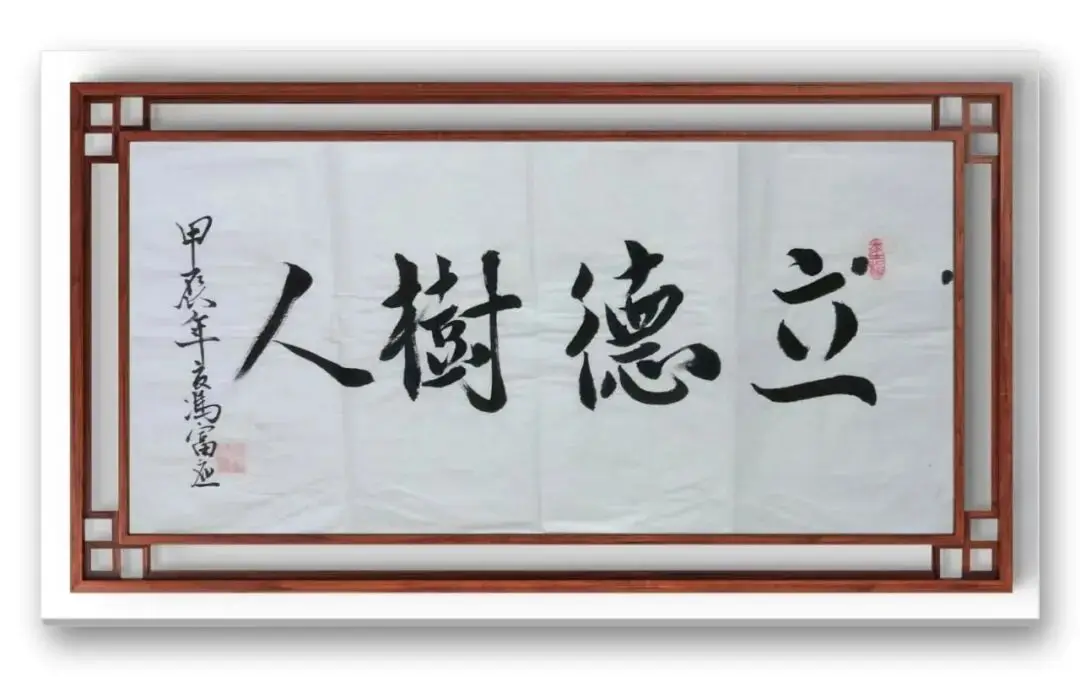 立德樹人
甲辰年夏馮富